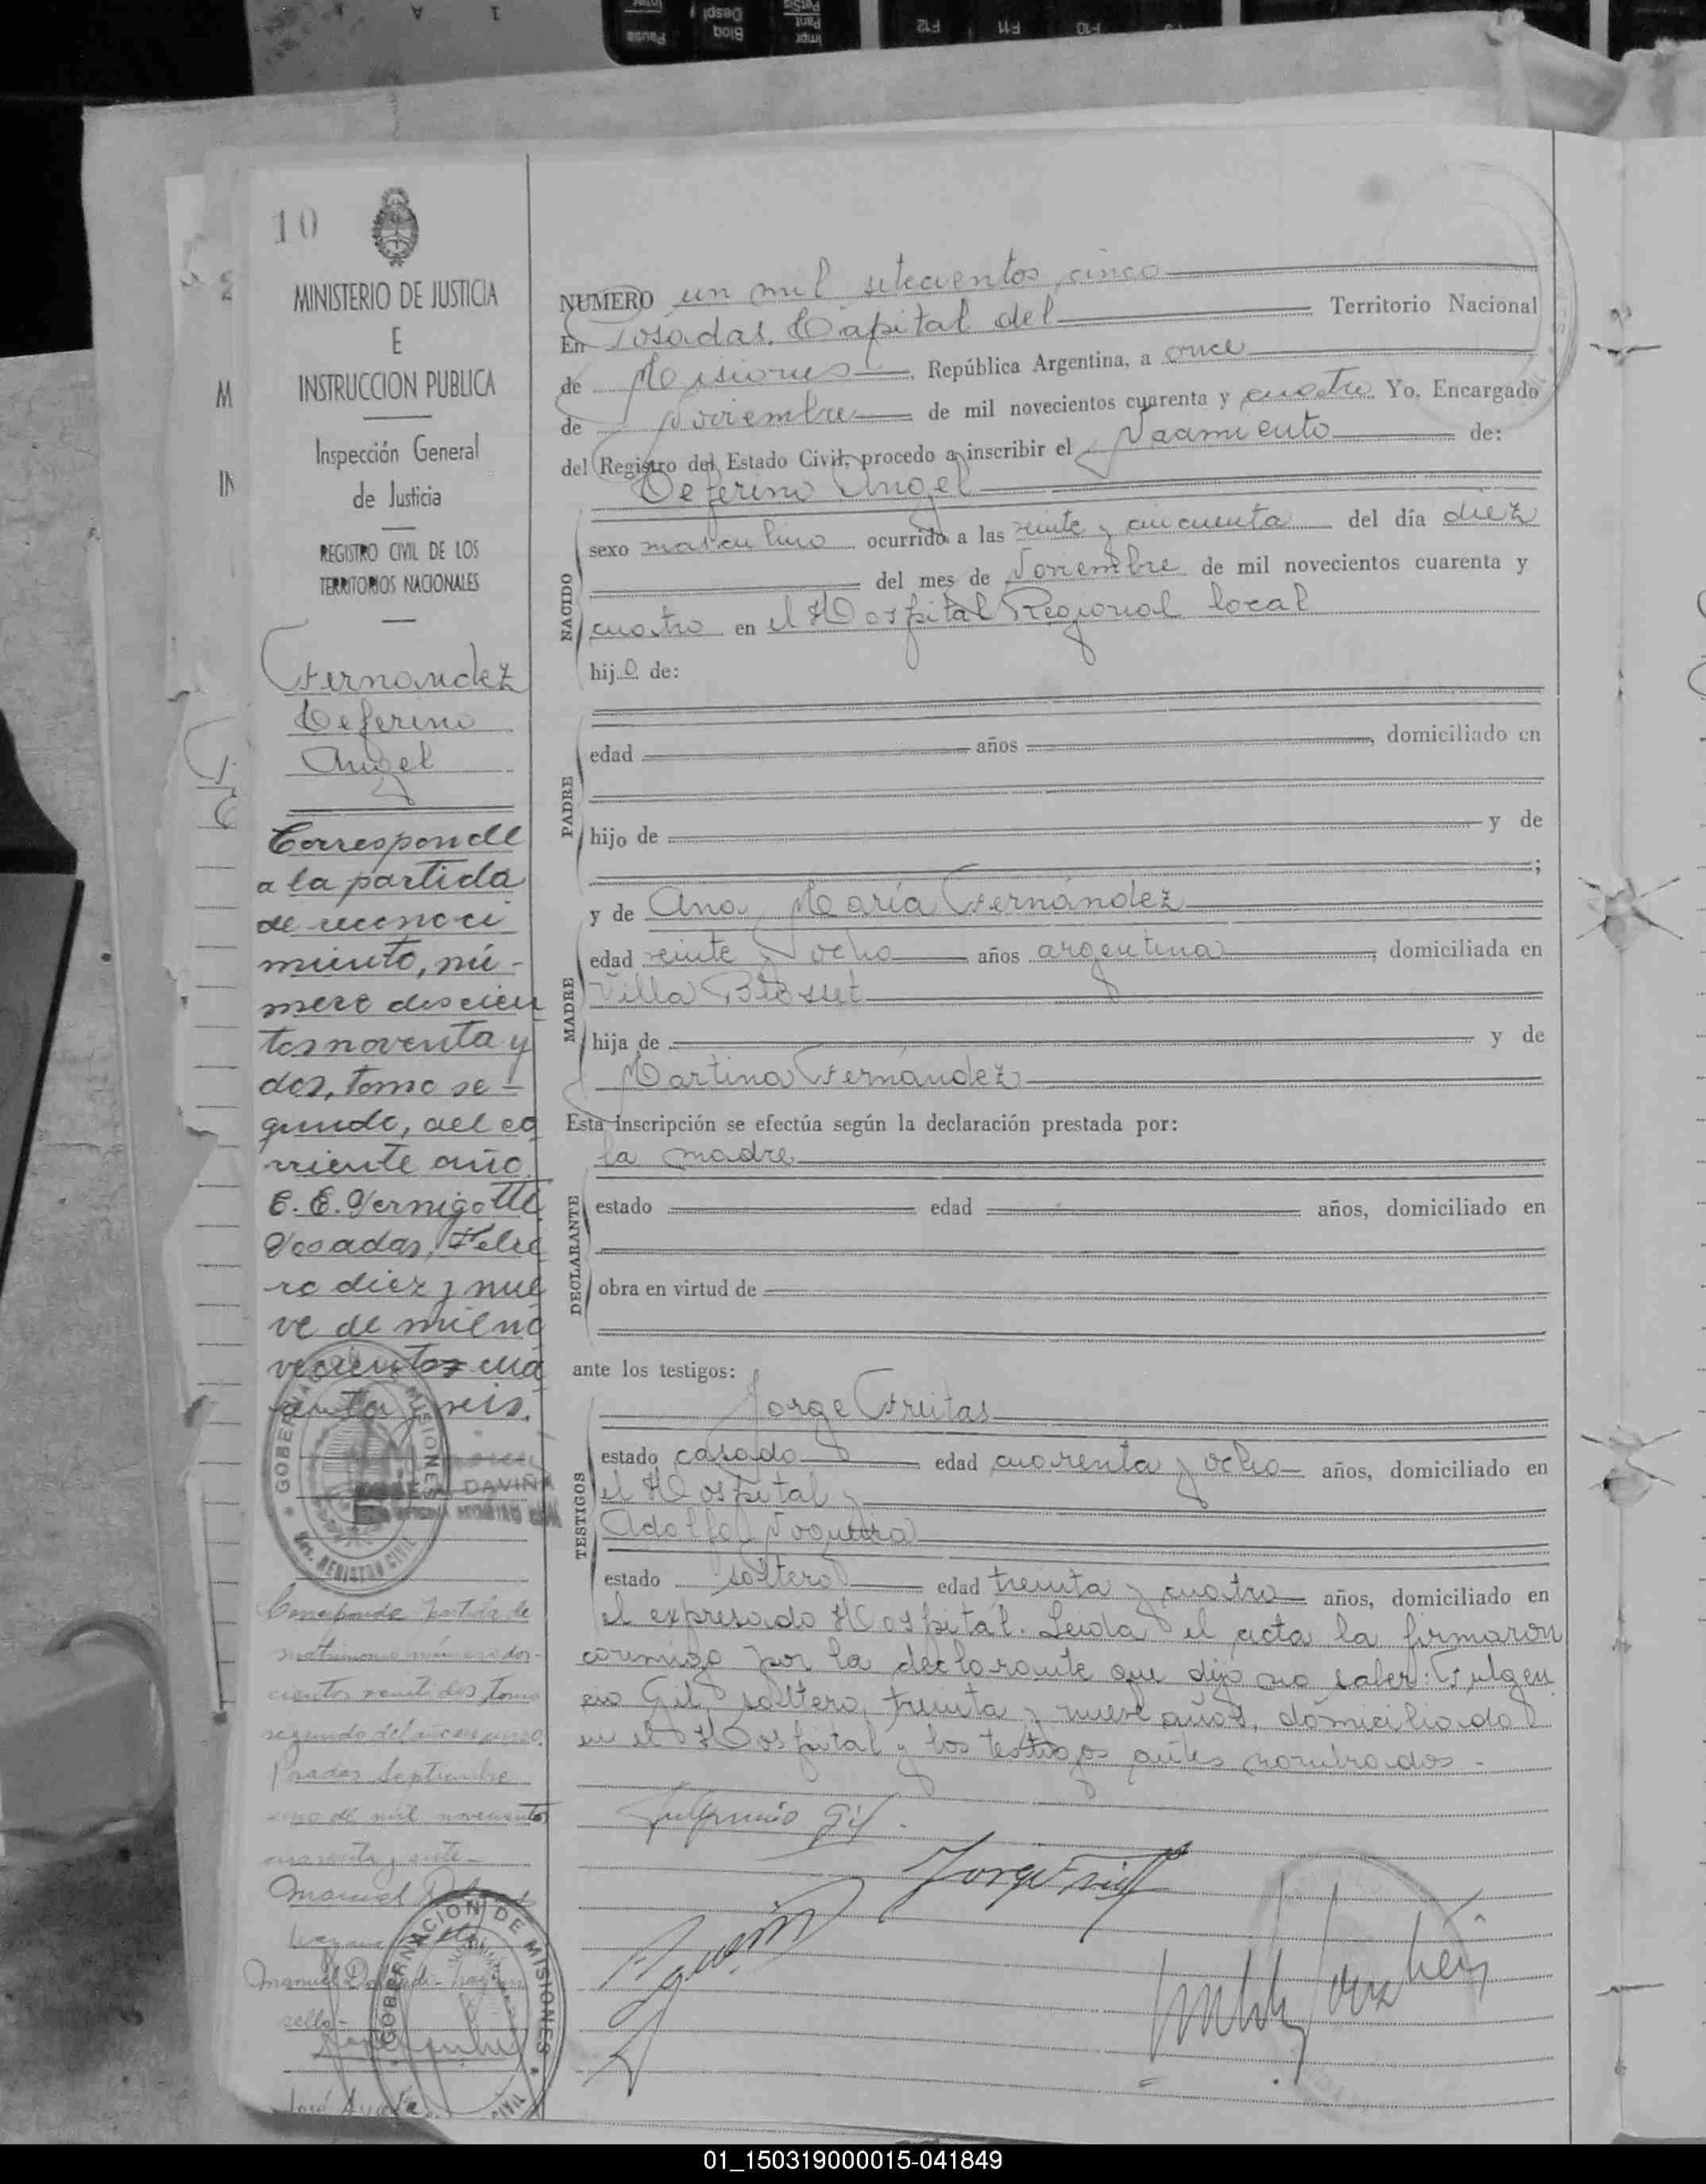 10
MINISTERIO DE JUSTICIA
E
INSTRUCCION PUBLICA
Inspección General
de Justicia
REGISTRO CIVIL DE LOS
TERRITORIOS NACIONALES
Fernandez
Ceferino
Angel
Corresponde
a la partida
de reconoci
miento, nú-
mero doscien
tos noventa y
dos, tomo se-
gundo, del co
rriente año
E. E. Vernigotti
Posadas, Febre
ro diez y nue
ve de mil no
vecientos cua
renta y seis.
GOBERNACION DE MISIONES
DAVIÑA
REGISTRO CIVIL
Corresponde partida de
matrimonio número dos-
cientos veintidos tomo
segundo del año en curso.
Posadas Septiembre
uno de mil novecientos
cuarenta y siete-
Manuel
Manuel
sello-
GOBERNACION DE MISIONES
José
NUMERO un mil setecientos cinco
En Posadas, Capital del Territorio Nacional
de Misiones, República Argentina, a once
de Noviembre de mil novecientos cuarenta y cuatro Yo, Encargado
del Registro del Estado Civil, procedo a inscribir el Nacimiento de:
Ceferino Angel
NACIDO
sexo masculino ocurrido a las veinte y cincuenta del día diez
del mes de Noviembre de mil novecientos cuarenta y
cuatro en el Hospital Regional local
hijo de:
PADRE
edad años , domiciliado en
hijo de y de
;
MADRE
y de Ana María Fernández
edad veinte y ocho años argentina, domiciliada en
Villa Blosset
hija de y de
Martina Fernández
Esta inscripción se efectúa según la declaración prestada por:
la madre
DECLARANTE
estado edad años, domiciliado en
obra en virtud de
ante los testigos:
Jorge Freitas
TESTIGOS
estado casado edad cuarenta y ocho años, domiciliado en
el Hospital y
Adolfo Nogueira
estado soltero edad treinta y cuatro años, domiciliado en
el expresado Hospital. Leida el acta la firmaron
conmigo por la declarante que dijo no saber: Fulgen
cio Gil, soltero, treinta y nueve años, domiciliado
en el Hospital y los testigos antes nombrados.-
Fulgencio Gil.
Jorge Freitas
01_150319000015-041849